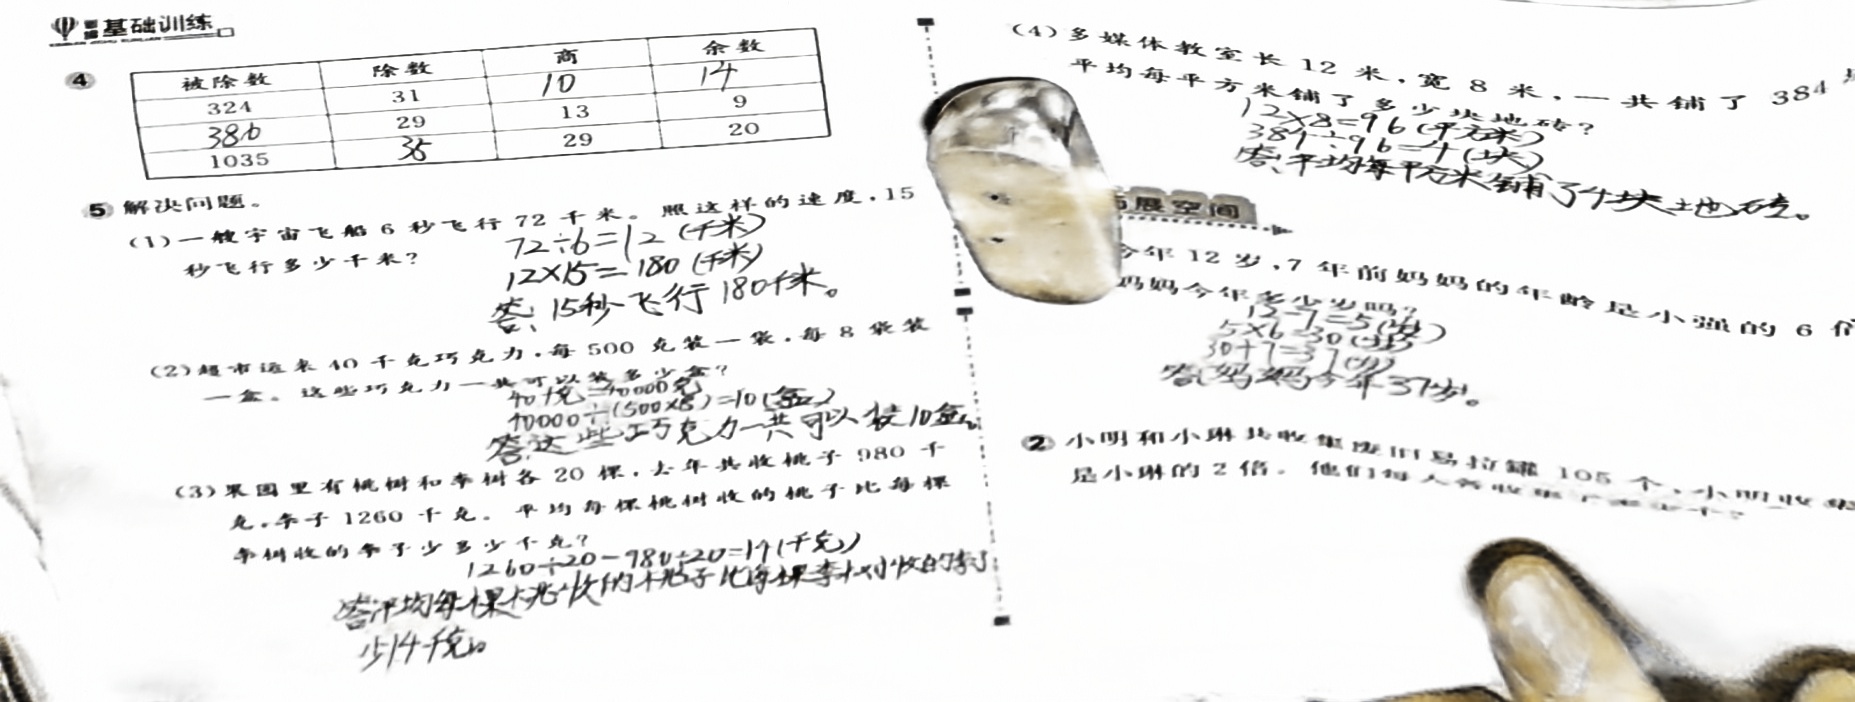 基础训练
4
被除数 除数 商 余数
324 31 10 14
386 29 13 9
1035 35 29 20
5 解决问题。
(1)一艘宇宙飞船6秒飞行72千米。照这样的速度,15
秒飞行多少千米?
72÷6=12(千米)
12×15=180(千米)
答:15秒飞行180千米。
(2)超市运来40千克巧克力,每500克装一袋,每8袋装
一盒。这些巧克力一共可以装多少盒?
40千克=40000克
40000÷(500×8)=10(盒)
答:这些巧克力一共可以装10盒。
(3)果园里有桃树和李树各20棵,去年共收桃子980千
克,李子1260千克。平均每棵桃树收的桃子比每棵
李树收的李子少多少千克?
1260÷20-980÷20=14(千克)
答:平均每棵桃收的桃子比每棵李树收的李子
少14千克。
(4)多媒体教室长12米,宽8米,一共铺了384
平均每平方米铺了多少块地砖?
12×8=96(平方米)
384÷96=4(块)
答:平均每平方米铺了4块地砖。
展空间
今年12岁,7年前妈妈的年龄是小强的6倍
妈妈今年多少岁吗?
12-7=5(岁)
5×6=30(岁)
30+7=37(岁)
答:妈妈今年37岁。
2 小明和小琳共收集废旧易拉罐105个,小明收集
是小琳的2倍。他们每人各收集了多少个?